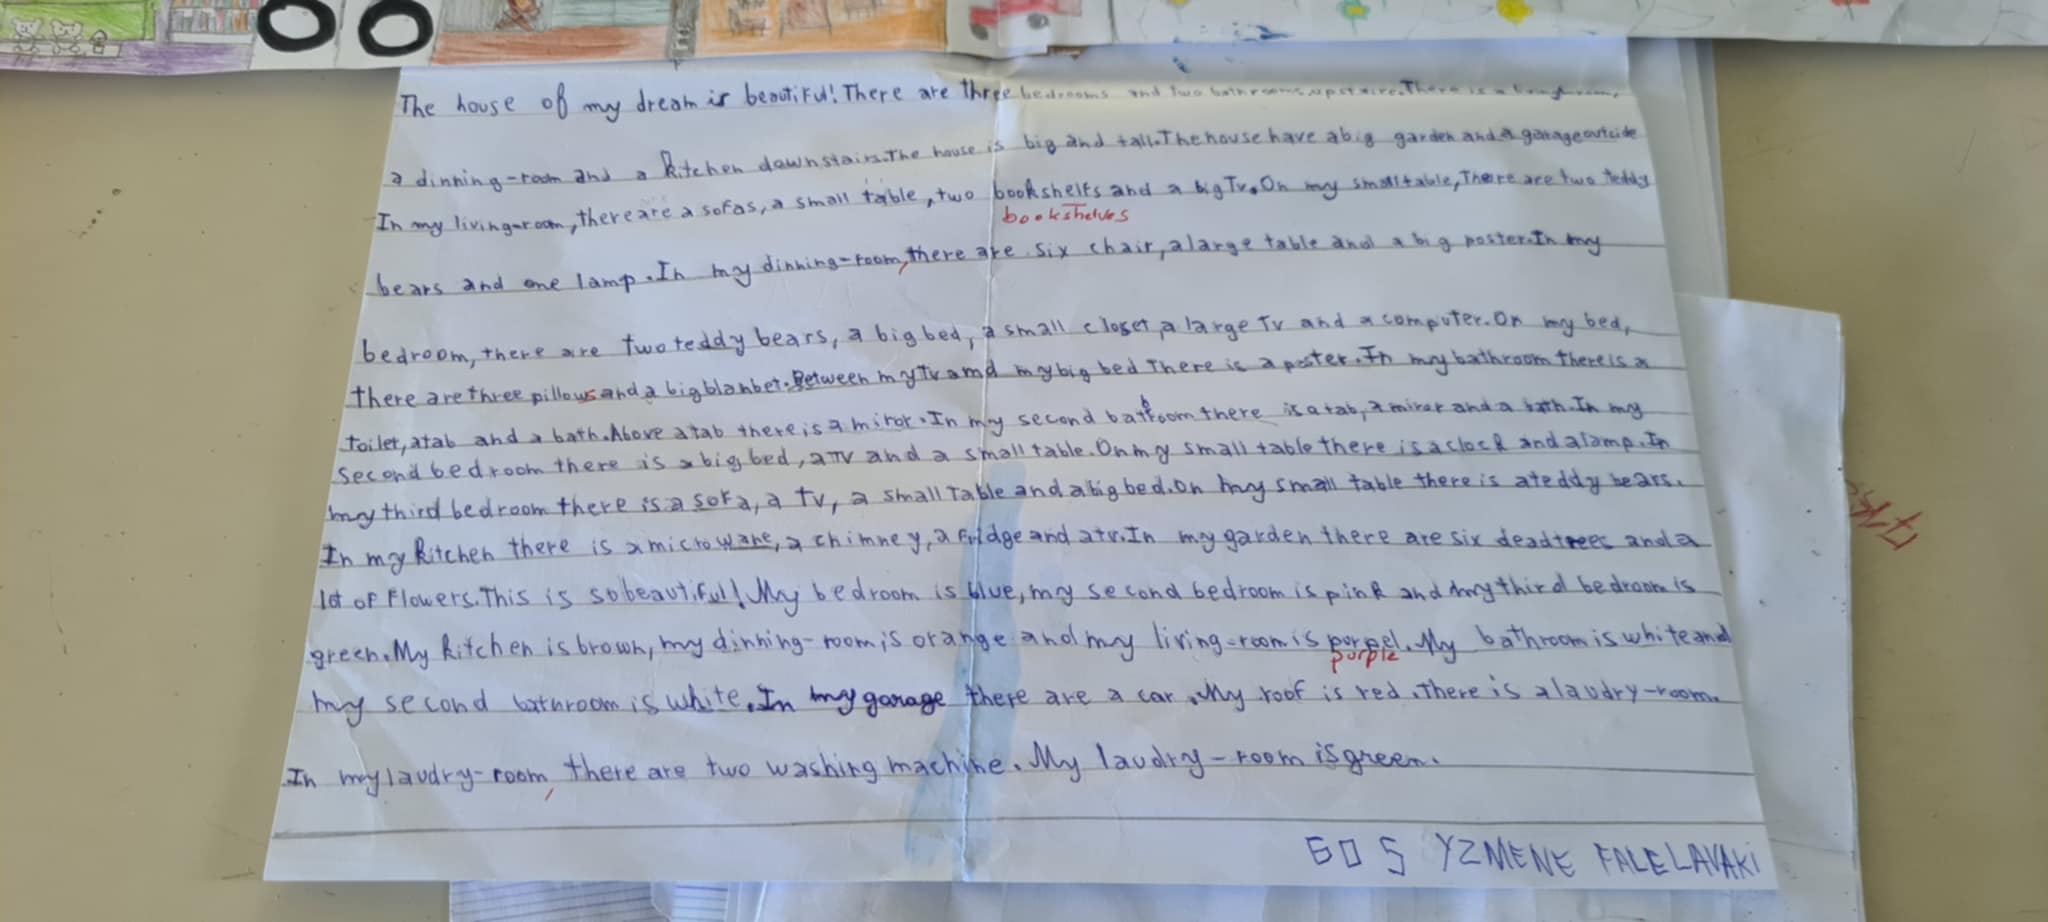 The house of my dream is beautiful! There are three bedrooms and two bathrooms upstairs. There is a living-room,
a dinning-room and a kitchen downstairs. The house is big and tall. The house have a big garden and a garage outside
In my living-room, there are a sofas, a small table, two bookshelfs and a big Tv. On my small table, There are two teddy
bookshelves
bears and one lamp. In my dinning-room, there are six chair, a large table and a big poster. In my
bedroom, there are two teddy bears, a big bed, a small closet, a large Tv and a computer. On my bed,
there are three pillows and a big blanket. Between my Tv and my big bed There is a poster. In my bathroom there is a
toilet, a tab and a bath. Above a tab there is a miror. In my second bathroom there is a tab, a miror and a bath. In my
second bedroom there is a big bed, a TV and a small table. On my small table there is a clock and a lamp. In
my third bedroom there is a sofa, a Tv, a small Table and a big bed. On my small table there is a teddy bears.
In my kitchen there is a microwane, a chimney, a fridge and a tv. In my garden there are six deadtrees and a
lot of flowers. This is so beautiful! My bedroom is blue, my second bedroom is pink and my third bedroom is
green. My kitchen is brown, my dinning-room is orange and my living-room is porpel. My bathroom is white and
purple
my second bathroom is white. In my garage there are a car. My roof is red. There is a laudry-room.
In my laudry-room, there are two washing machine. My laudry-room is green.
605 YZMENE FALELAVAKI